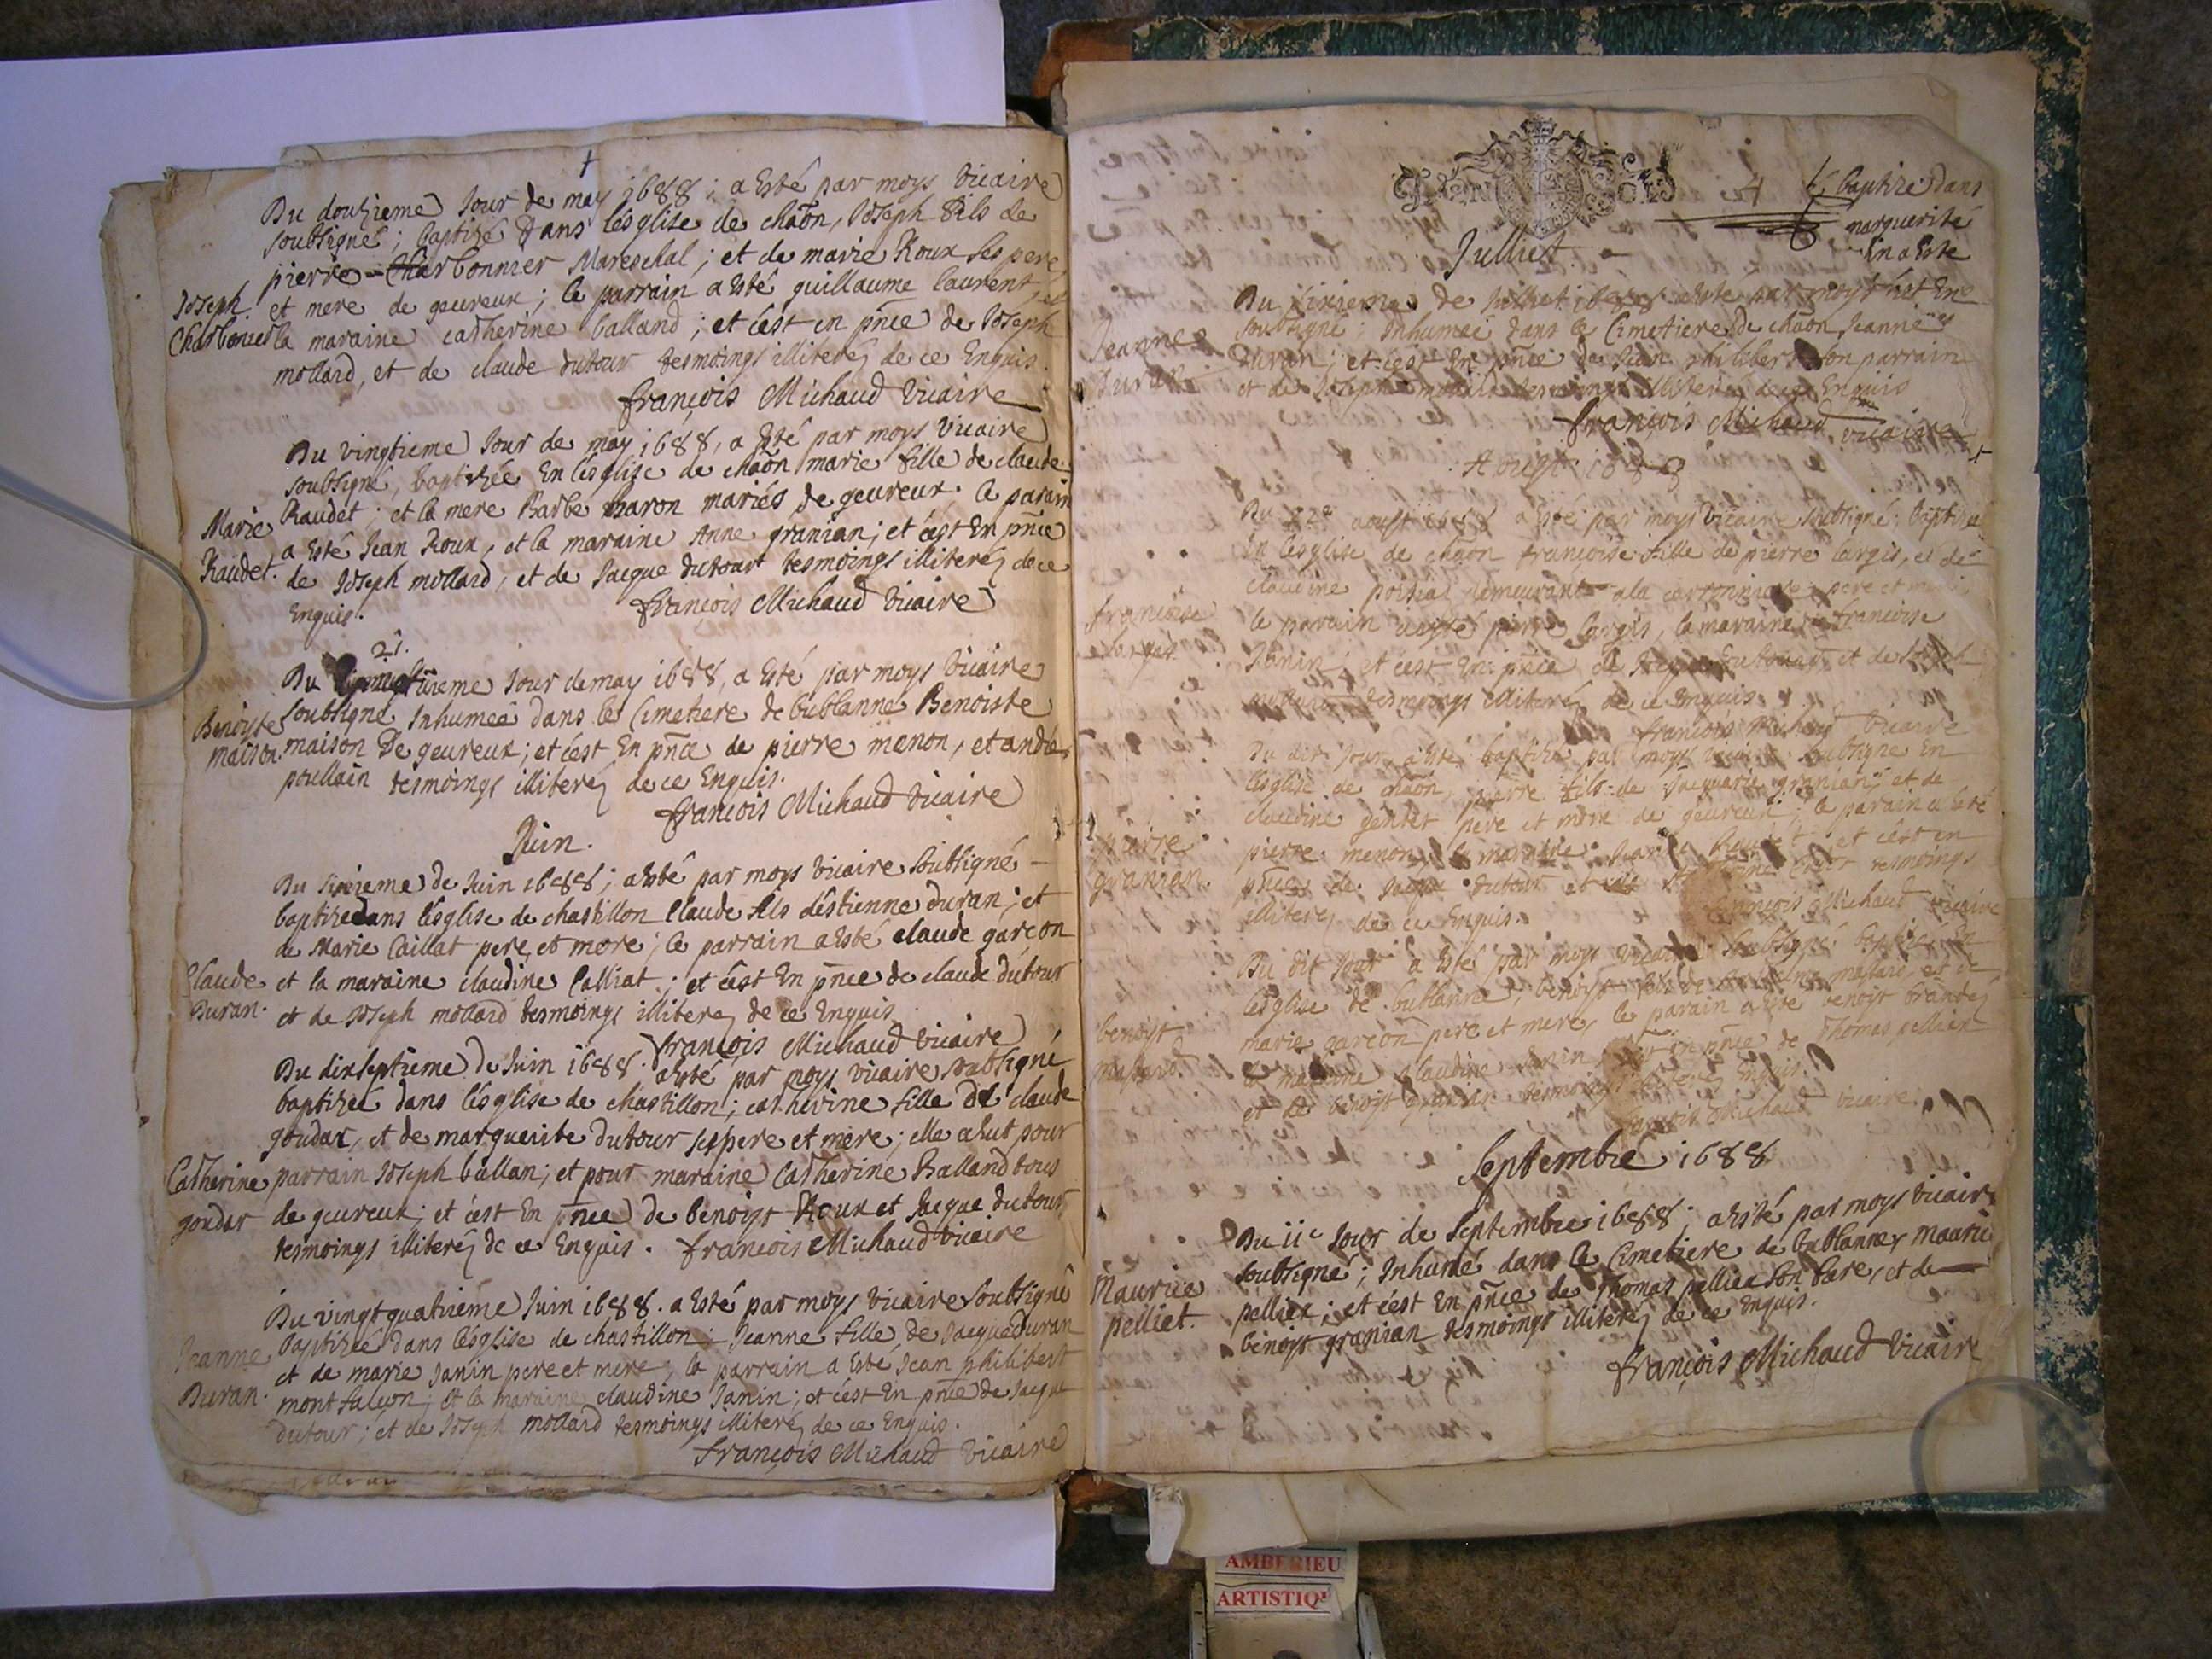 Du douzieme Jour de may 1688; a Esté par moys Vicaire
soubsigné; baptizé Dans lésglise de chaōn, Joseph Fils de
pierre Charbonnier Mareschal; et de marie Roux ses pere
Joseph Charbonier
et mere de geureux; le parrain a Esté guillaume laurent,
la maraine catherine balland; et cést en pñce de Joseph
mollard, et de claude dutour tesmoings illiteréz de ce Enquis.
françois Michaud Vicaire
Du vingtieme Jour de may 1688, a Esté par moys Vicaire
soubsigné, baptizée En lésglise de chaōn marie fille de claude
Marie Raudet.
Raudet; et la mere Barbe baron mariés de geureux. le parain
a Esté Jean Roux, et la maraine Anne granian; et cést En pñce
de Joseph mollard, et de Jacque dutour tesmoings illiteréz de ce
Enquis.
françois Michaud Vicaire
21.
Du Jour de may 1688, a Esté par moys Vicaire
Benoyte maison.
soubsigné Inhumeé dans le Cimetiere de bublanne Benoiste
maison De geureux; et cést En pñce de pierre menon, et andré
poullain tesmoings illiteréz de ce Enquis.
françois Michaud Vicaire
Juin.
Du sixieme de Juin 1688; a Esté par moys Vicaire soubsigné
baptize dans lésglise de chastillon Claude fils déstienne duran; et
de Marie Caillat pere et mere; le parrain a Esté claude garcon
Claude Duran.
et la maraine claudine Calliat; et cést En pñce de claude dutour
et de Joseph mollard tesmoings illiteréz de ce Enquis
françois Michaud Vicaire
Du dixseptieme de Juin 1688. a Esté par moys Vicaire soubsigné
baptizeé dans lésglise de chastillon; catherine fille de claude
goudar, et de marguerite dutour ses pere et mere; elle a hut pour
Catherine goudar
parrain Joseph ballan; et pour maraine Catherine Balland tous
de geureux; et cést En pñce de benoist Roux et Jacque dutour
tesmoings illiteréz de ce Enquis. françois Michaud Vicaire
Du vingt quatrieme Juin 1688. a Esté par moys Vicaire soubsigné
Jeanne Duran.
baptizeé dans lésglise de chastillon Jeanne fille de Jacque Duran
et de marie Janin pere et mere, le parrain a Esté Jean philibert
mont falcon; et la maraine claudine Janin; et cést En pñce de Jacque
dutour; et de Joseph mollard tesmoings illiteréz de ce Enquis.
françois Michaud Vicaire
4
baptize dans
marguerite
En a Este
Julliet.
Du sixieme de Julliet 1688 a Esté par moys
Jeanne Duran
soubsigné; Inhumeé dans le Cimetiere de chaōn Jeanne
Duran; et cést En pñce de Jean philibert son parrain
et de Joseph mollard tesmoings illiteréz de ce Enquis
françois Michaud Vicaire
Aoust 1688
Du 22e aoust 1688 a Esté par moys Vicaire soubsigné; baptizé
En lésglise de chaōn françoise fille de pierre largis, et de
claudine demeurants a la pere et mere
françoise largis
le parain a Esté pierre largis, la maraine françoise
Janin; et cést En pñce de Jacque dutour et de Joseph
mollard tesmoings illiteréz de ce Enquis.
françois Michaud Vicaire
Du dit Jour a Esté baptizé par moys Vicaire soubsigné En
lésglise de chaōn, pierre fils de granian et de
claudine gentet pere et mere de geureux; le parain a Esté
pierre granian
pierre menon, la maraine et cést en
pñce de Jacque dutour et tesmoings
illiteréz de ce Enquis.
françois Michaud Vicaire
Du dit Jour a Esté par moys Vicaire soubsigné baptizé En
lésglise de bublanne, benoist fils de et de
benoist
marie garcon pere et mere, le parain a Esté benoist
la maraine claudine Janin; cést en pñce de Thomas pelliex
et de benoist granian tesmoings illiteréz Enquis.
françois Michaud Vicaire
Septembre 1688
Du iie Jour de Septembre 1688; a Esté par moys Vicaire
Maurice pelliet.
soubsigné; Inhumé dans le Cimetiere de bublanne Maurice
pelliex; et cést En pñce de Thomas pelliex son pere, et de
benoist granian tesmoings illiteréz de ce Enquis.
françois Michaud Vicaire
AMBERIEU
ARTISTIQ